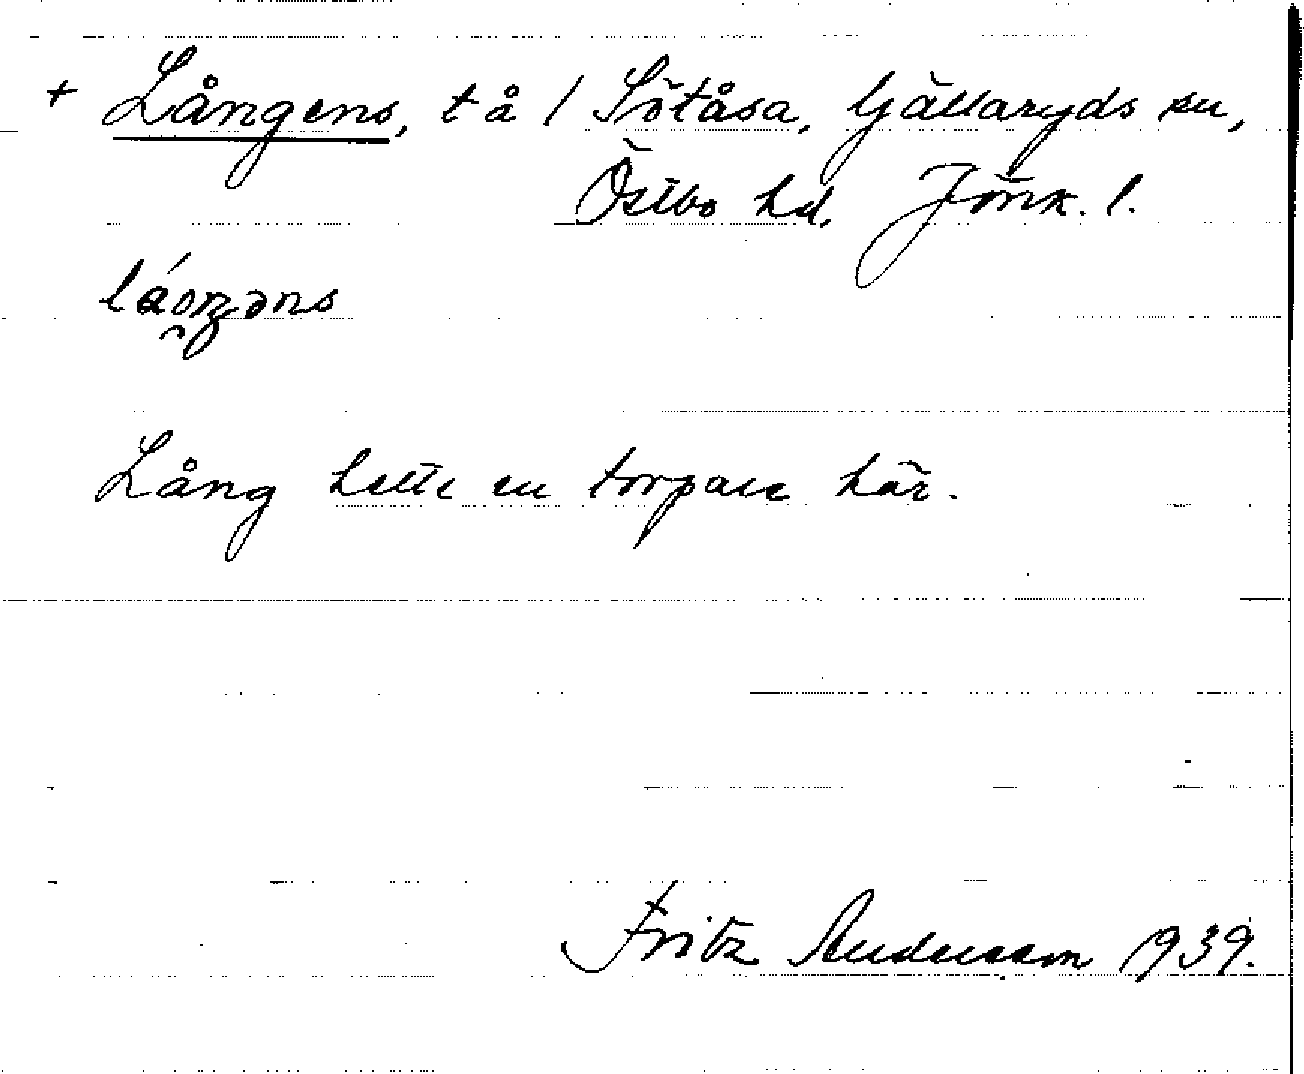 + Långens, t å / Sötåsa, Gällaryds sn,
Östbo hd, Jönk. l.
Lång hette en torpare här.
Fritz Andersson 1939.